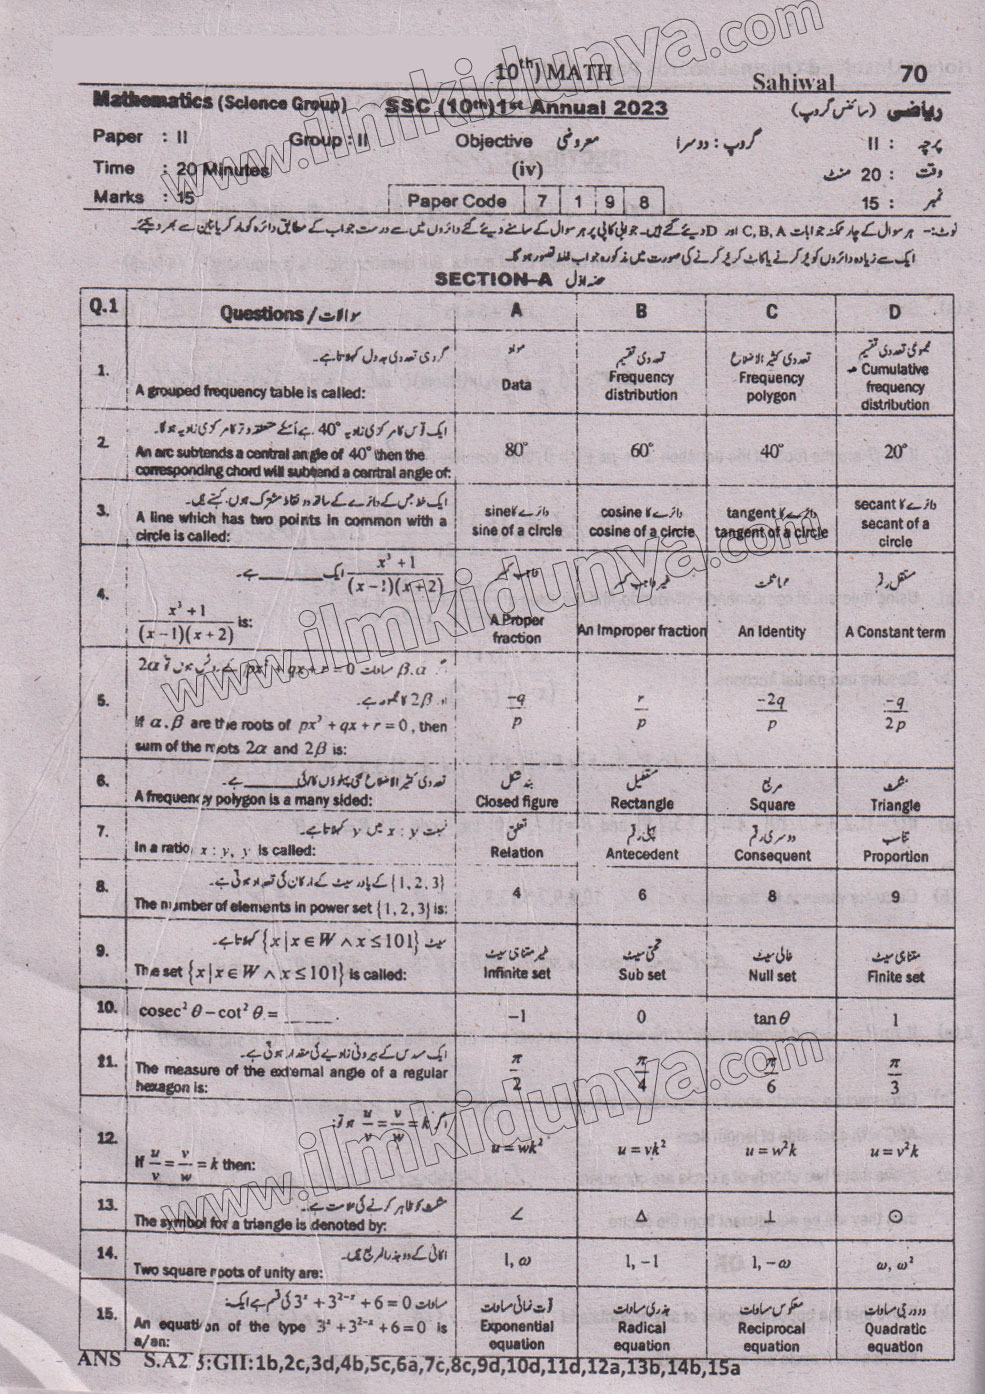 10th) MATH
Sahiwal
70
Mathematics (Science Group)
SSC (10th) 1st Annual 2023
ریاضی (سائنس گروپ)
Paper : II
Group : II
Objective
معروضی
گروپ : دوسرا
پرچہ : II
Time : 20 Minutes
(iv)
وقت : 20 منٹ
Marks : 15
Paper Code 7 1 9 8
نمبر : 15
نوٹ:- ہر سوال کے چار ممکنہ جوابات C, B, A اور D دیئے گئے ہیں۔ جوابی کاپی پر ہر سوال کے سامنے دیئے گئے دائروں میں سے درست جواب کے مطابق دائرہ کو مارکر یا پین سے بھر دیجئے۔
ایک سے زیادہ دائروں کو پُر کرنے یا کاٹ کر پُر کرنے کی صورت میں مذکورہ جواب غلط تصور ہوگا۔
SECTION-A حصہ اوّل
Q.1 Questions / سوالات A B C D
1. گروہی تعددی جدول کہلاتا ہے۔
A grouped frequency table is called:
مواد
Data
تعددی تقسیم
Frequency distribution
تعددی کثیر الاضلاع
Frequency polygon
مجموعی تعددی تقسیم
Cumulative frequency distribution
2. ایک قوس کا مرکزی زاویہ 40° ہے اسکے متعلقہ وتر کا مرکزی زاویہ ہوگا۔
An arc subtends a central angle of 40° then the
corresponding chord will subtend a central angle of:
80° 60° 40° 20°
3. ایک خط جس کے دائرے کے ساتھ دو نقاط مشترک ہوں، کہتے ہیں۔
A line which has two points in common with a
circle is called:
دائرے کا sine
sine of a circle
دائرے کا cosine
cosine of a circle
دائرے کا tangent
tangent of a circle
دائرے کا secant
secant of a circle
4. x³ + 1 / (x − 1)(x + 2) ایک ______ ہے۔
x³ + 1 / (x − 1)(x + 2) is:
واجب کسر
A Proper fraction
غیر واجب کسر
An Improper fraction
مماثلت
An Identity
مستقل رقم
A Constant term
5. α, β مساوات px² + qx + r = 0 کے روٹس ہوں تو 2α
اور 2β کا مجموعہ ہے۔
If α, β are the roots of px² + qx + r = 0, then
sum of the roots 2α and 2β is:
−q/p r/p −2q/p −q/2p
6. تعددی کثیر الاضلاع کئی پہلوؤں کا/کی ______ ہے۔
A frequency polygon is a many sided:
بند شکل
Closed figure
مستطیل
Rectangle
مربع
Square
مثلث
Triangle
7. نسبت x : y میں y کہلاتا ہے۔
In a ratio x : y, y is called:
تعلق
Relation
پہلی رقم
Antecedent
دوسری رقم
Consequent
تناسب
Proportion
8. {1, 2, 3} کے پاور سیٹ کے ارکان کی تعداد ہوتی ہے۔
The number of elements in power set {1, 2, 3} is:
4 6 8 9
9. سیٹ {x | x ∈ W ∧ x ≤ 101} کہلاتا ہے۔
The set {x | x ∈ W ∧ x ≤ 101} is called:
غیر متناہی سیٹ
Infinite set
تحتی سیٹ
Sub set
خالی سیٹ
Null set
متناہی سیٹ
Finite set
10. cosec² θ − cot² θ = ______.
−1 0 tan θ 1
11. ایک مسدس کے بیرونی زاویے کی مقدار ہوتی ہے۔
The measure of the external angle of a regular
hexagon is:
π/2 π/4 π/6 π/3
12. اگر u/v = v/w = k ہو تو:
If u/v = v/w = k then:
u = wk² u = vk² u = w²k u = v²k
13. مثلث کو ظاہر کرنے کی علامت ہے۔
The symbol for a triangle is denoted by:
∠ Δ ⊥ ⊙
14. اکائی کے دو جذر المربع ہیں۔
Two square roots of unity are:
1, ω 1, −1 1, −ω ω, ω²
15. مساوات 3ˣ + 3²⁻ˣ + 6 = 0 کی قسم ہے ایک:
An equation of the type 3ˣ + 3²⁻ˣ + 6 = 0 is
a/an:
قوت نمائی مساوات
Exponential equation
جذری مساوات
Radical equation
معکوس مساوات
Reciprocal equation
دو درجی مساوات
Quadratic equation
ANS S.A2 3:GII:1b,2c,3d,4b,5c,6a,7c,8c,9d,10d,11d,12a,13b,14b,15a
www.ilmkidunya.com
www.ilmkidunya.com
www.ilmkidunya.com